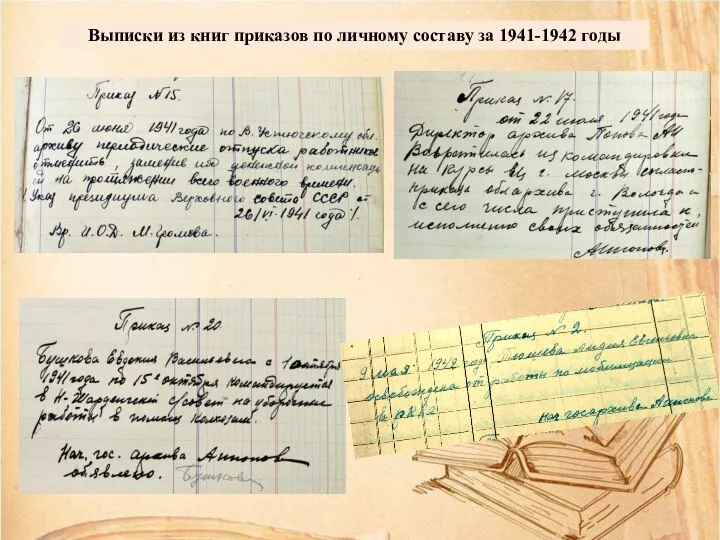 Выписки из книг приказов по личному составу за 1941-1942 годы
Приказ №15.
От 26 июня 1941 года по В. Устюгскому обл.
архиву периодические отпуска работников
отменить, заменив его денежной компенсаци
ей на протяжении всего военного времени.
Указ президиума Верховного совета СССР от
26/VI-1941 года
Вр. И.О.Д. М. Громова.
Приказ №17.
от 22 июля 1941 года
Директор архива Попова АН
Возвратилась из командировки
на курсы в г. Москви согласно
приказа облархива г. Вологда и
с сего числа приступила к
исполнению своих обязанностей
Приказ №20
Бушкова Евдокия Васильевна с 1 октября
1941 года по 15 октября командируется
в Н-Шарденгский с/совет на уборочные
работы в помощь колхозам.
Нач. гос. архива Антонов
объявлено. Бушкова
Приказ №2.
9 мая 1942 года Тюшева Лидия Евгеньевна
освобождена от работы по мобилизации
в РККА
нач. госархива